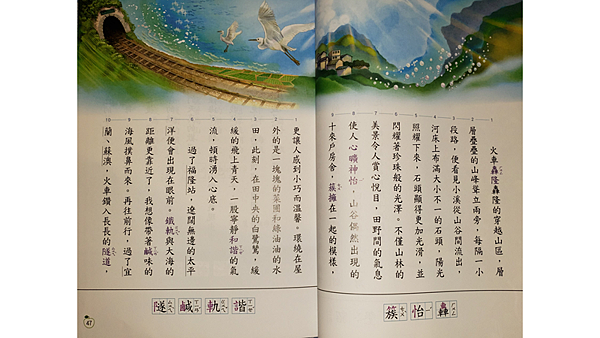 火車轟隆轟隆的穿越山區，層
層疊疊的山峰聳立兩旁，每隔一小
段路，便看見小溪從山谷間流出，
河床上布滿大小不一的石頭，陽光
照耀下來，石頭顯得更加光滑，並
閃耀著珍珠般的光澤。不僅山林的
美景令人賞心悅目，田野間的氣息
使人心曠神怡，山谷偶然出現的
十來戶房舍，簇擁在一起的模樣，
轟ㄏㄨㄥ
怡ㄧˊ
簇ㄘㄨˋ
更讓人感到小巧而溫馨。環繞在屋
外的是一塊塊的菜圃和綠油油的水
田，此刻，在田中央的白鷺鷥，緩
緩的飛上青天，一股寧靜和諧的氣
流，頓時湧入心底。
過了福隆站，遼闊無邊的太平
洋便會出現在眼前。鐵軌與大海的
距離更靠近了，我想像帶著鹹味的
海風撲鼻而來。再往前行，過了宜
蘭、蘇澳，火車鑽入長長的隧道，
諧ㄒㄧㄝˊ
軌ㄍㄨㄟˇ
鹹ㄒㄧㄢˊ
隧ㄙㄨㄟˋ
47